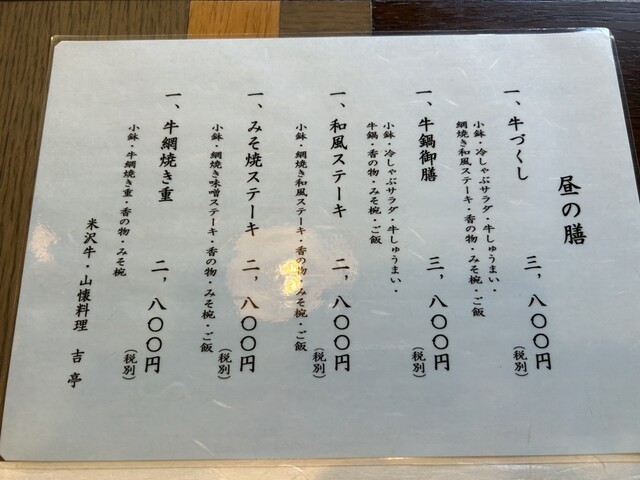 昼の膳
一、牛づくし 三,八〇〇円
小鉢・冷しゃぶサラダ・牛しゅうまい・
網焼き和風ステーキ・香の物・みそ椀・ご飯
(税別)
一、牛鍋御膳 三,八〇〇円
小鉢・冷しゃぶサラダ・牛しゅうまい・
牛鍋・香の物・みそ椀・ご飯
(税別)
一、和風ステーキ 二,八〇〇円
小鉢・網焼き和風ステーキ・香の物・みそ椀・ご飯
(税別)
一、みそ焼ステーキ 二,八〇〇円
小鉢・網焼き味噌ステーキ・香の物・みそ椀・ご飯
(税別)
一、牛網焼き重 二,八〇〇円
小鉢・牛網焼き重・香の物・みそ椀
(税別)
米沢牛・山懐料理 吉亭